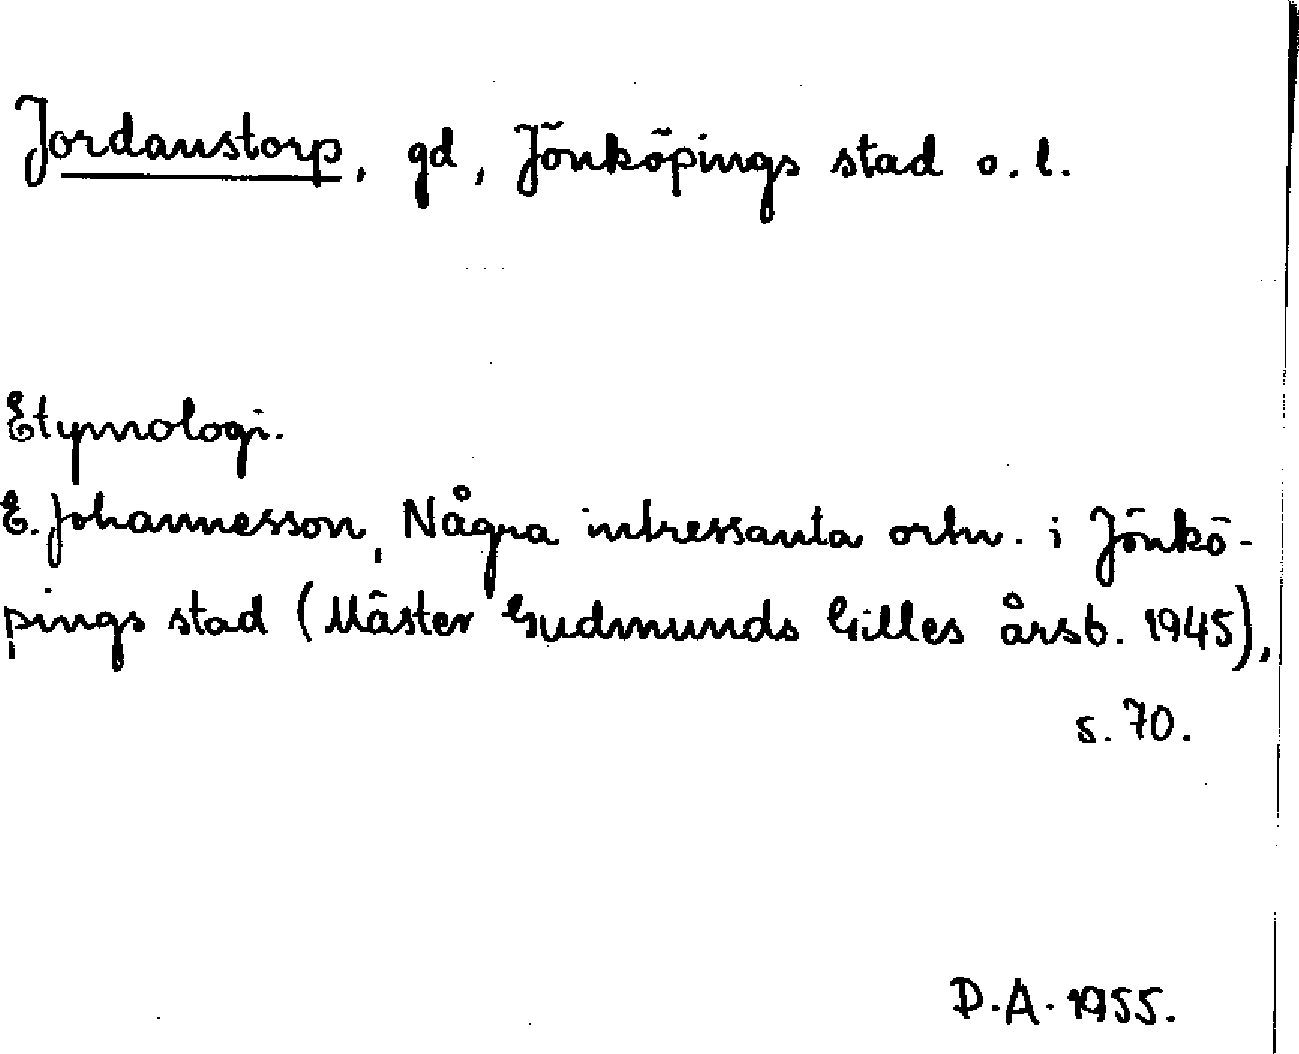 Jordanstorp, gd, Jönköpings stad o. l.
Etymologi.
E. Johannesson, Några intressanta ortn. i Jönkö-
pings stad (Mäster Gudmunds Gilles årsb. 1945),
s. 70.
D.A. 1955.